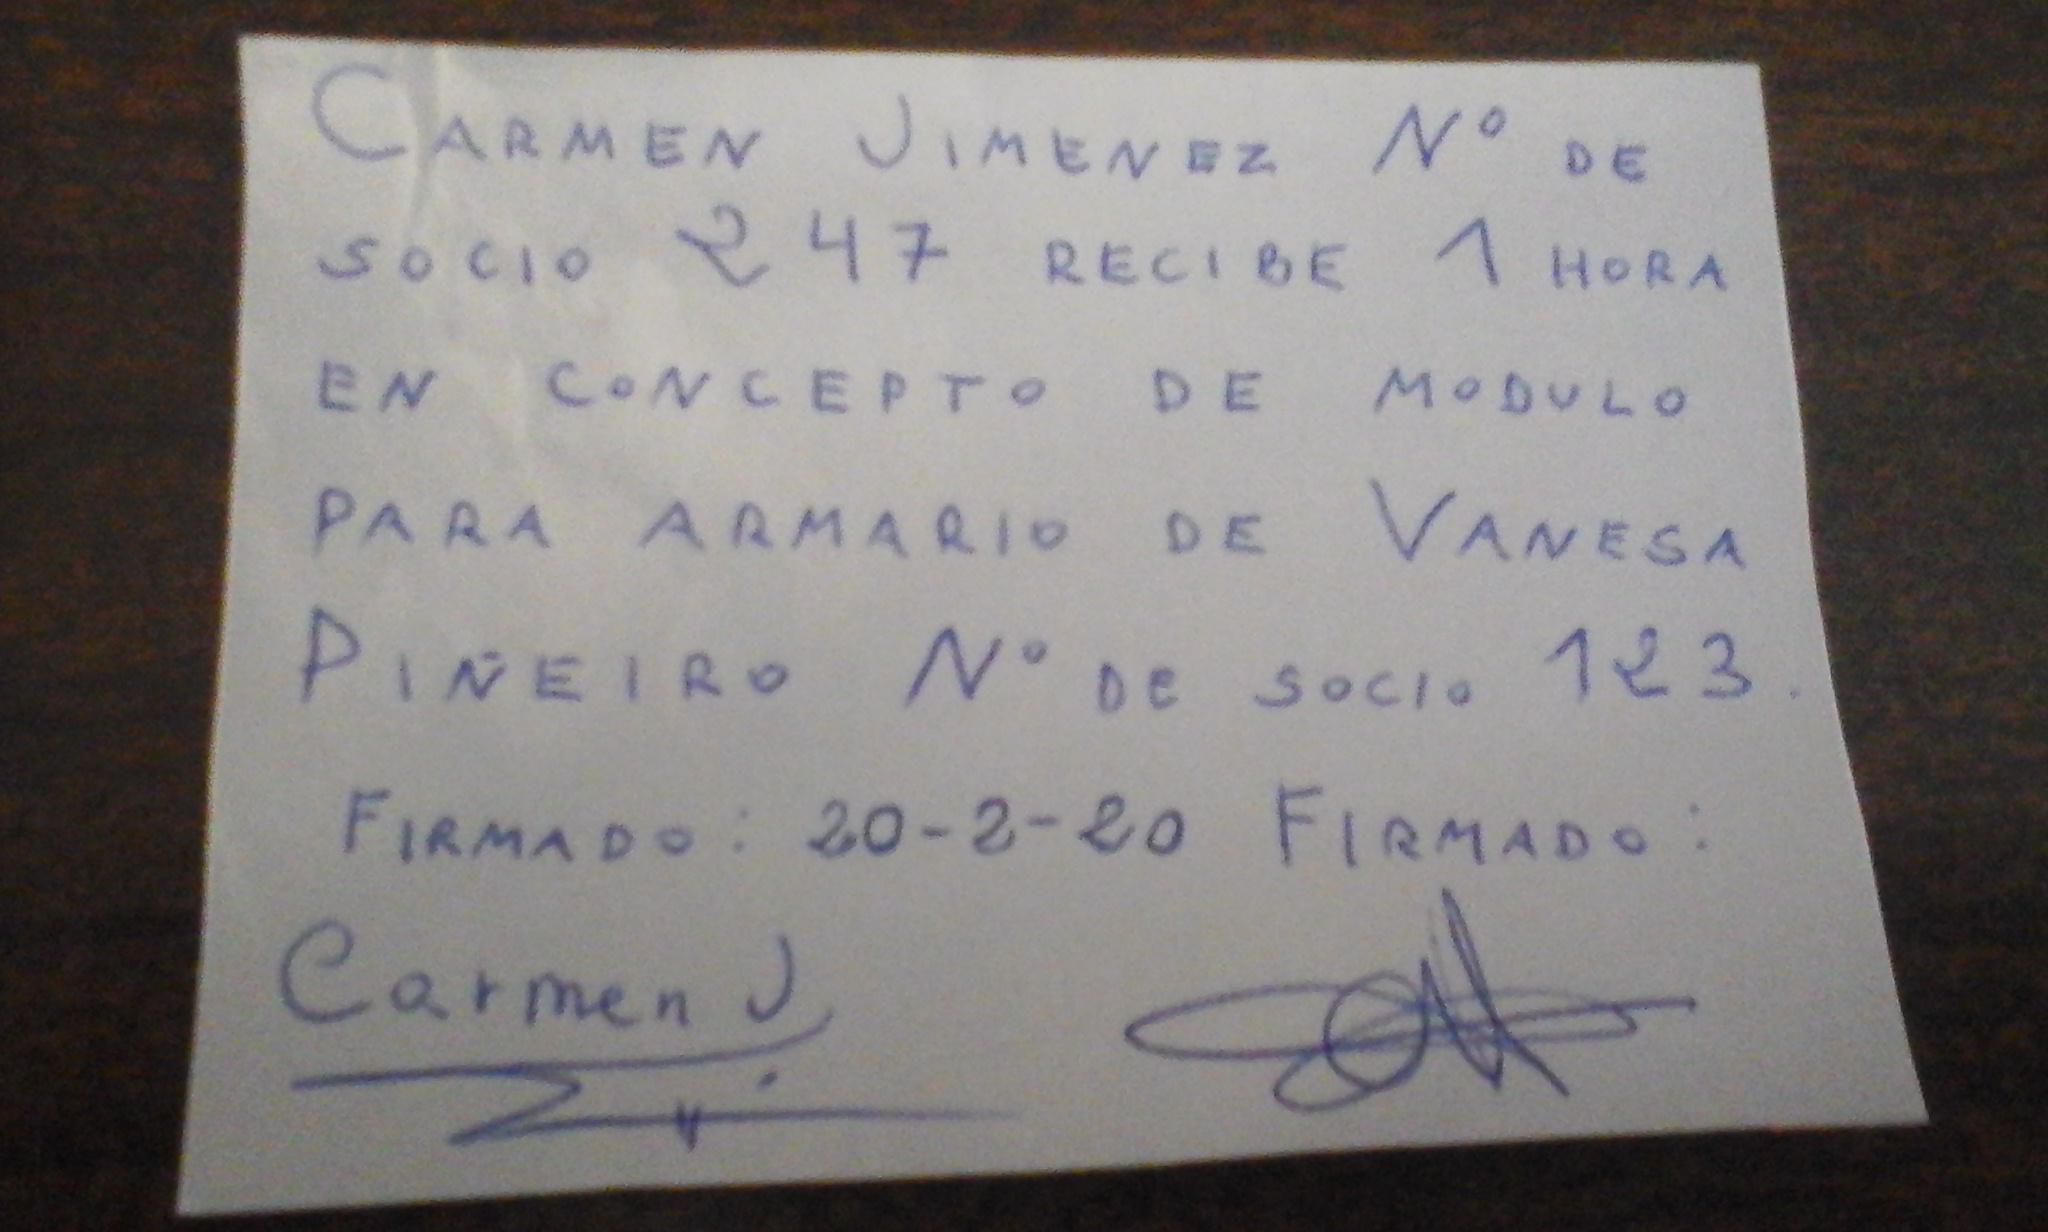 CARMEN JIMENEZ Nº DE
SOCIO 247 RECIBE 1 HORA
EN CONCEPTO DE MODULO
PARA ARMARIO DE VANESA
PIÑEIRO Nº DE SOCIO 123.
FIRMADO: 20-2-20 FIRMADO:
Carmen J